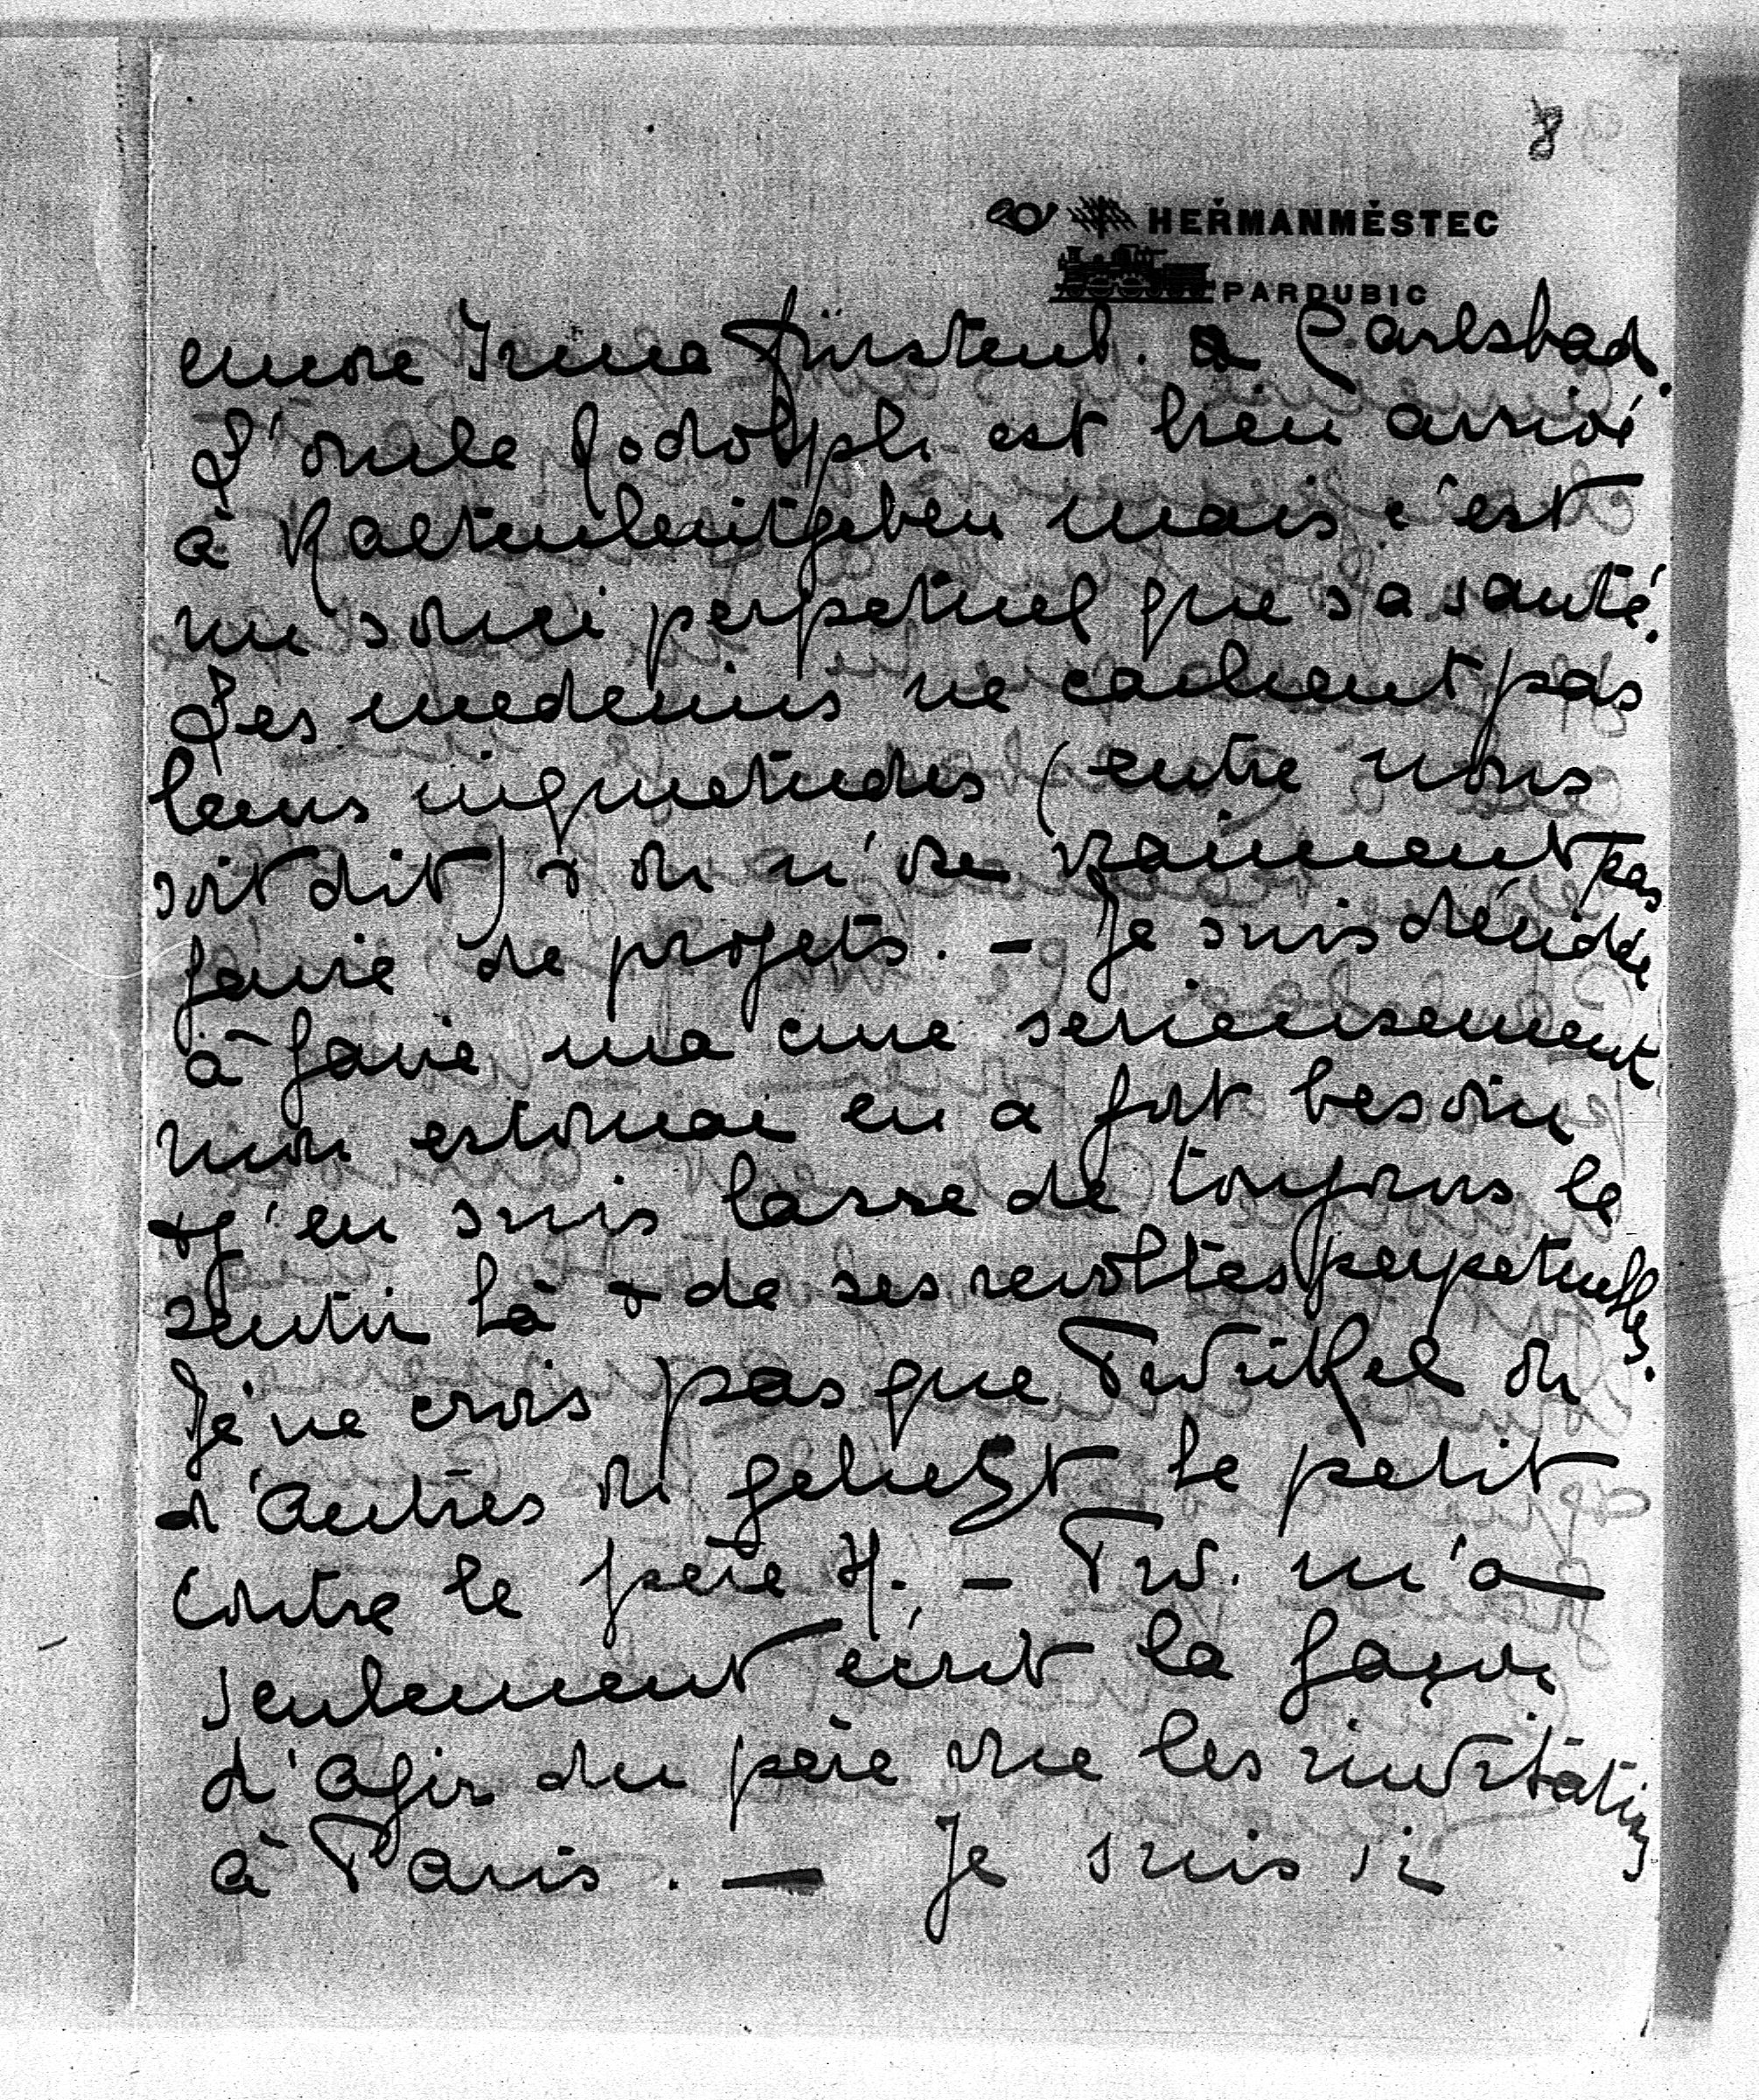 8
HEŘMANMĚSTEC
PARDUBIC
encore Irma Fürstenb. à Carlsbad.
L'oncle Rodolph est bien arrivé
à Kaltenleutgeben mais c'est
un souci perpetuel que sa santé.
Les medecins ne cachent pas
leurs inquietudes (entre nous
soit dit) & on n'ose vraiment pas
faire de projets. – Je suis décidée
à faire ma cure serieusement
mon estomac en a fort besoin
& j'en suis lasse de toujours le
sentir là & de ses revoltes perpetuelles.
Je ne crois pas que Twickel ou
d'autres on gehetzt le petit
contre le père H. – Tw. m'a
seulement écrit la façon
d'agir du père vue les invitations
à Paris. — Je suis si